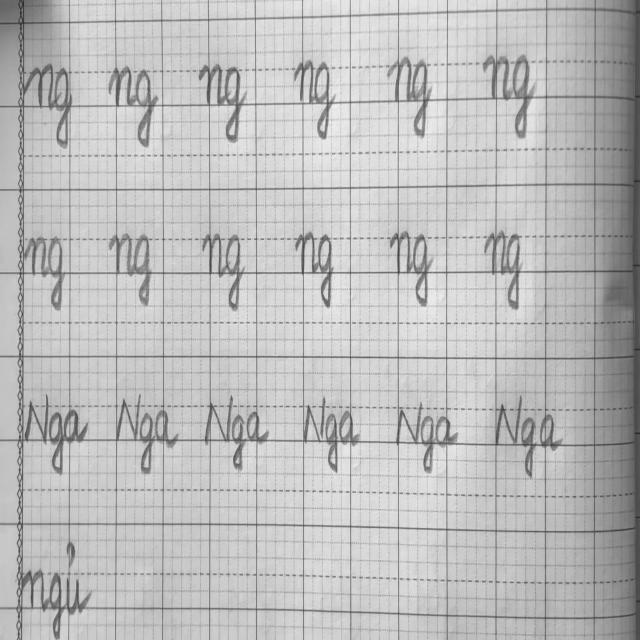 ng ng ng ng ng ng
ng ng ng ng ng ng
Nga Nga Nga Nga Nga Nga
ngủ